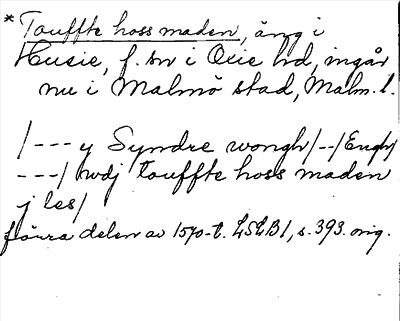 * Touffte hoss maden, äng i
Husie, f. sn i Oxie hd, ingår
nu i Malmö stad, Malm. l.
/--- y Syndre wongh/--/Engh/
---/ wdj touffte hoss maden
j les/
förra delen av 1570-t. LSLB1, s. 393. orig.